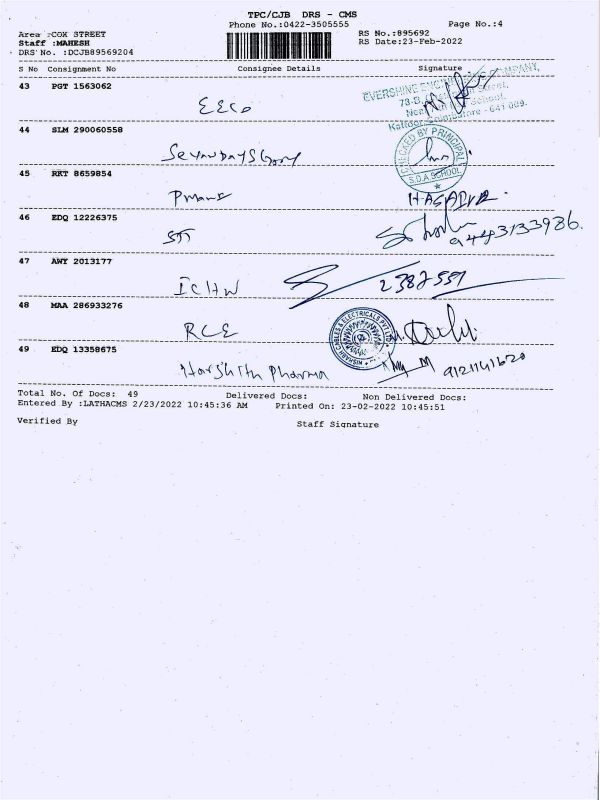 TPC/CJB DRS - CMS
Phone No.:0422-3505555
Page No.:4
Area :COX STREET
RS No.:895692
Staff :MAHESH
RS Date:23-Feb-2022
DRS No. :DCJB89569204
S No Consignment No Consignee Details Signature
43 PGT 1563062
EECO
EVERSHINE ENGINEERING COMPANY,
Coimbatore - 641 009.
44 SLM 290060558
CHECKED BY PRINCIPAL
S.D.A SCHOOL
45 RKT 8659854
46 EDQ 12226375
9443133986.
47 AWY 2013177
ICHW
2387551
48 MAA 286933276
RCE
CABLES & ELECTRICALS PVT LTD
49 EDQ 13358675
Harshith Pharma
9121141620
Total No. Of Docs: 49 Delivered Docs: Non Delivered Docs:
Entered By :LATHACMS 2/23/2022 10:45:36 AM Printed On: 23-02-2022 10:45:51
Verified By
Staff Signature